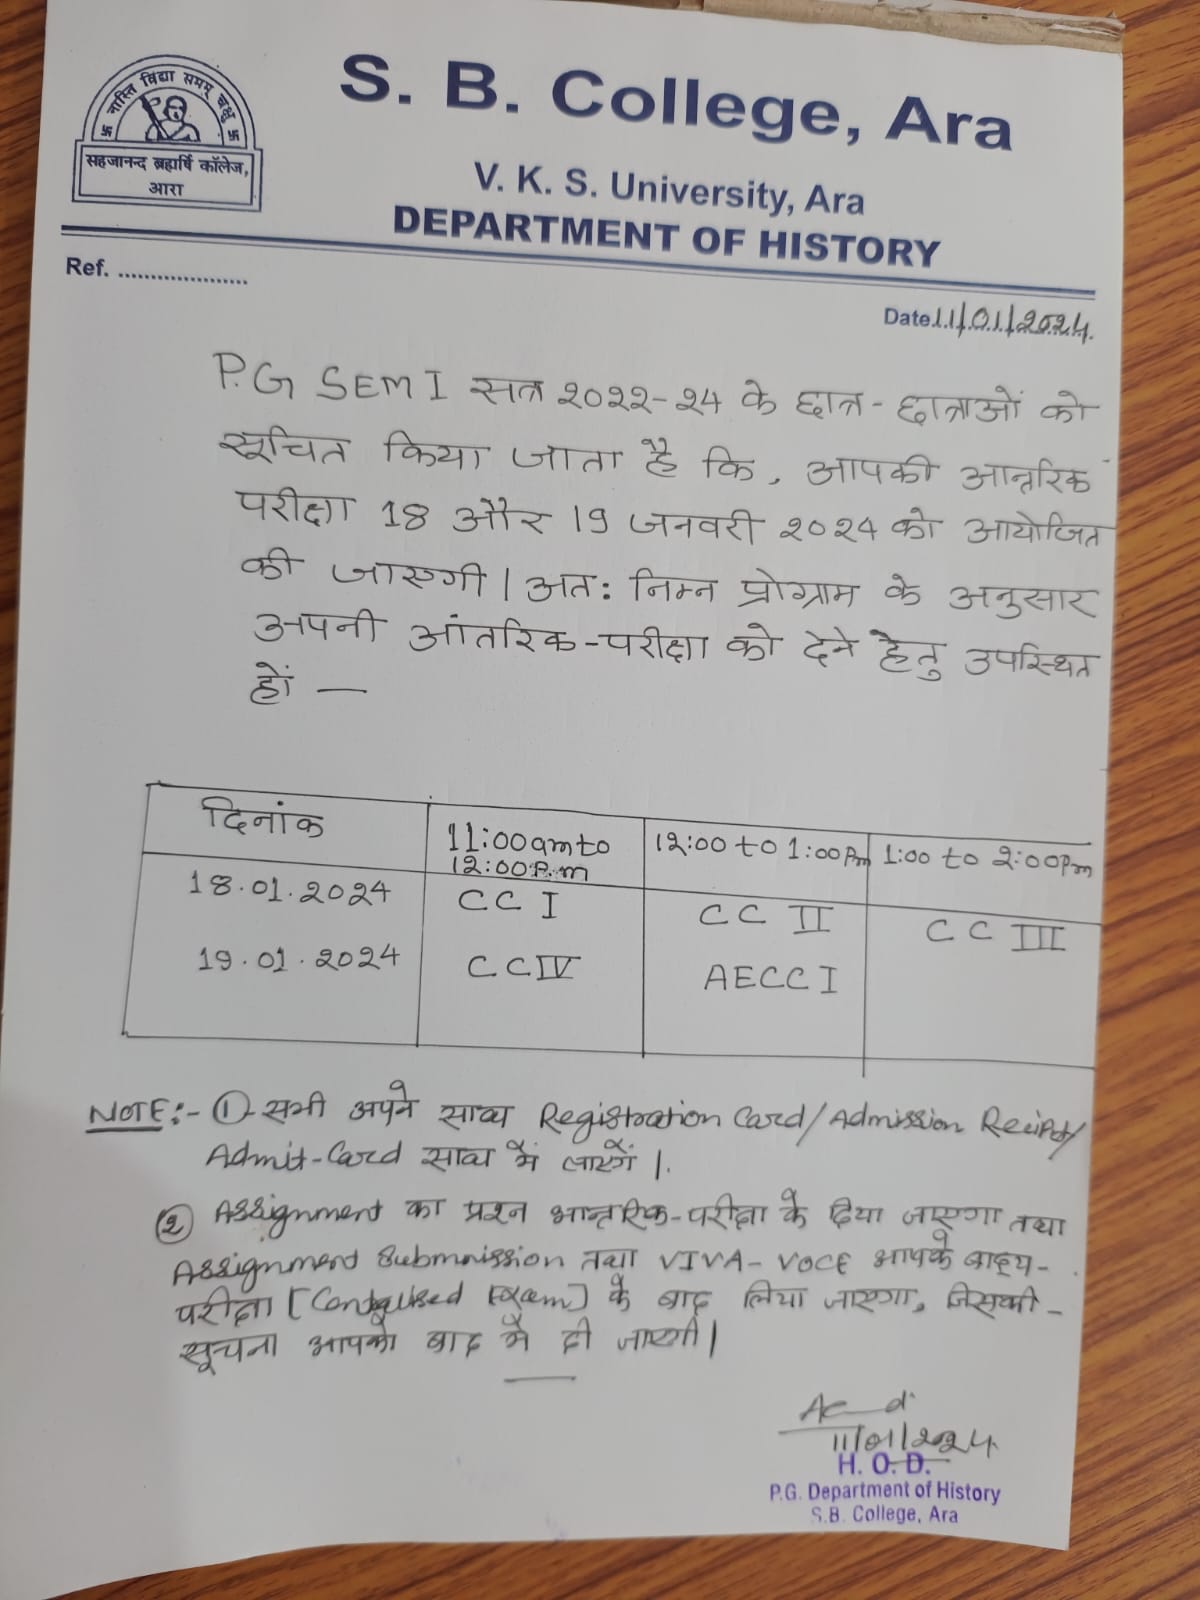 नास्ति विद्या समम् चक्षु
सहजानन्द ब्रह्मर्षि कॉलेज,
आरा
S. B. College, Ara
V. K. S. University, Ara
DEPARTMENT OF HISTORY
Ref. ....................
Date 11/01/2024.
P.G SEM I सत्र 2022-24 के छात्र-छात्राओं को
सूचित किया जाता है कि, आपकी आन्तरिक
परीक्षा 18 और 19 जनवरी 2024 को आयोजित
की जाएगी। अत: निम्न प्रोग्राम के अनुसार
अपनी आंतरिक-परीक्षा को देने हेतु उपस्थित
हों —
दिनांक 11:00am to 12:00P.m 12:00 to 1:00Pm 1:00 to 2:00Pm
18.01.2024 CC I CC II CC III
19.01.2024 CC IV AECC I
NOTE:- ① सभी अपने साथ Registration Card/Admission Recipt/
Admit-Card साथ में लाएगें।
② Assignment का प्रश्न आन्तरिक-परीक्षा के दिया जाएगा तथा
Assignment Submission तथा VIVA-VOCE आपके बाह्य-
परीक्षा [ Exam] के बाद लिया जाएगा, जिसकी-
सूचना आपको बाद मैं दी जाएगी।
11/01/2024
H. O. D.
P.G. Department of History
S.B. College, Ara